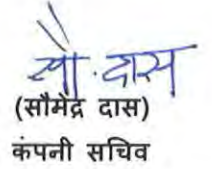 सौ. दास
(सौमेंद्र दास)
कंपनी सचिव